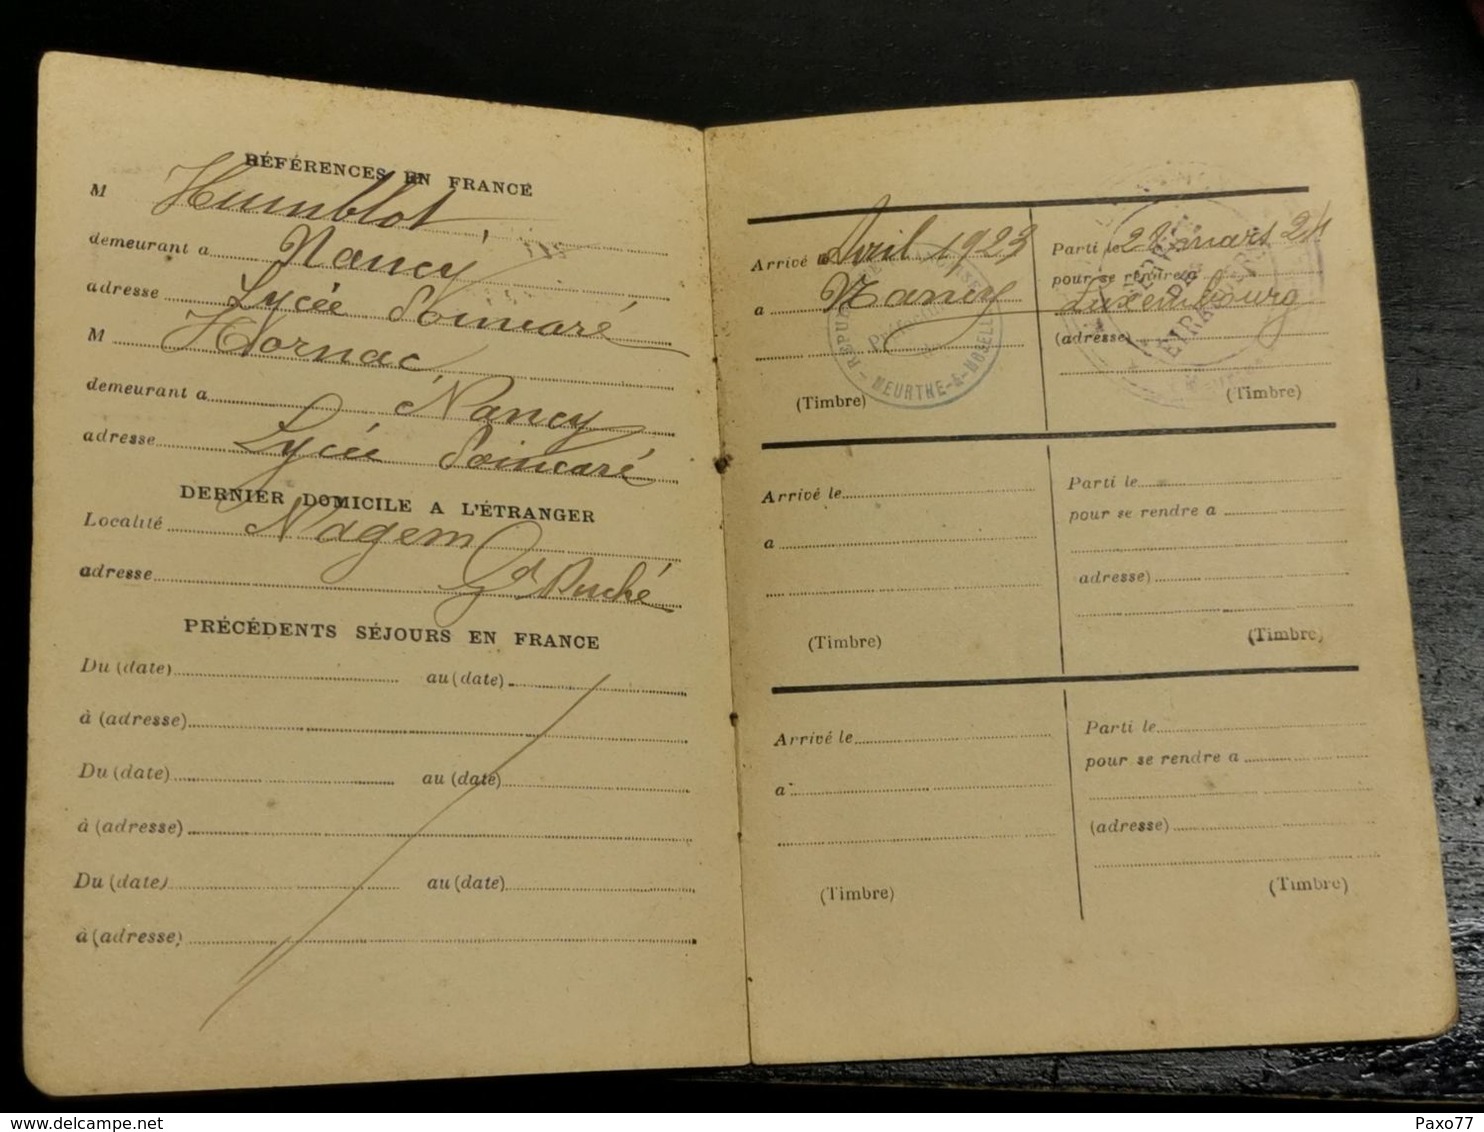 RÉFÉRENCES EN FRANCE
M Humblot,
demeurant a Nancy
adresse Lycée Poincaré
M Hornac,
demeurant a Nancy
adresse Lycée Poincaré
DERNIER DOMICILE A L'ÉTRANGER
Localité Nagem
adresse Gd Duché
PRÉCÉDENTS SÉJOURS EN FRANCE
Du (date) au (date)
à (adresse)
Du (date) au (date)
à (adresse)
Du (date) au (date)
à (adresse)
Arrivé le Avril 1923
a Nancy
(Timbre)
MEURTHE-&-MOSELLE
Parti le mars 24
pour se rendre a
Luxembourg
(adresse)
(Timbre)
Arrivé le
a
(Timbre)
Parti le
pour se rendre a
adresse)
(Timbre)
Arrivé le
a
(Timbre)
Parti le
pour se rendre a
(adresse)
(Timbre)
Paxo77